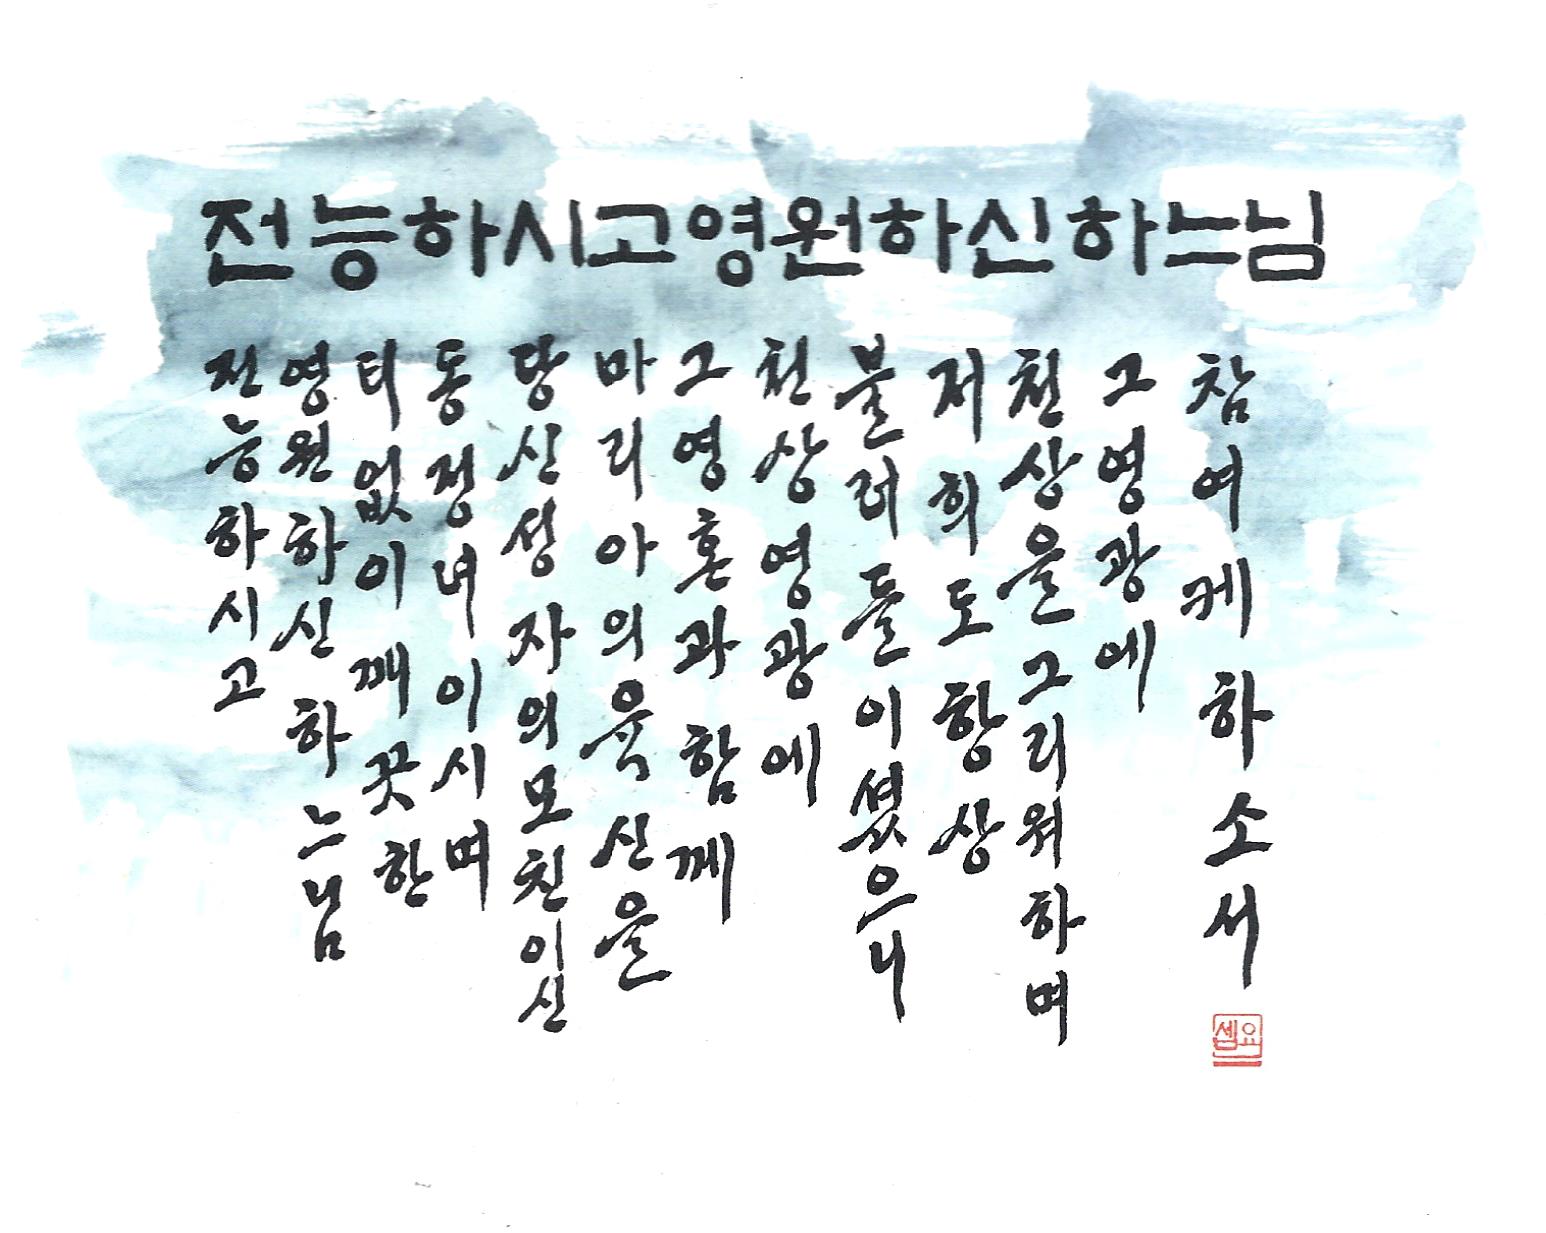 전능하시고영원하신하느님
전능하시고
영원하신 하느님
티없이 깨끗한
동정녀 이시며
당신 성자의 모친이신
마리아의 육신을
그 영혼과 함께
천상영광에
불러 들이셨으니
저희도 항상
천상을 그리워하며
그 영광에
참여케 하소서
요셉